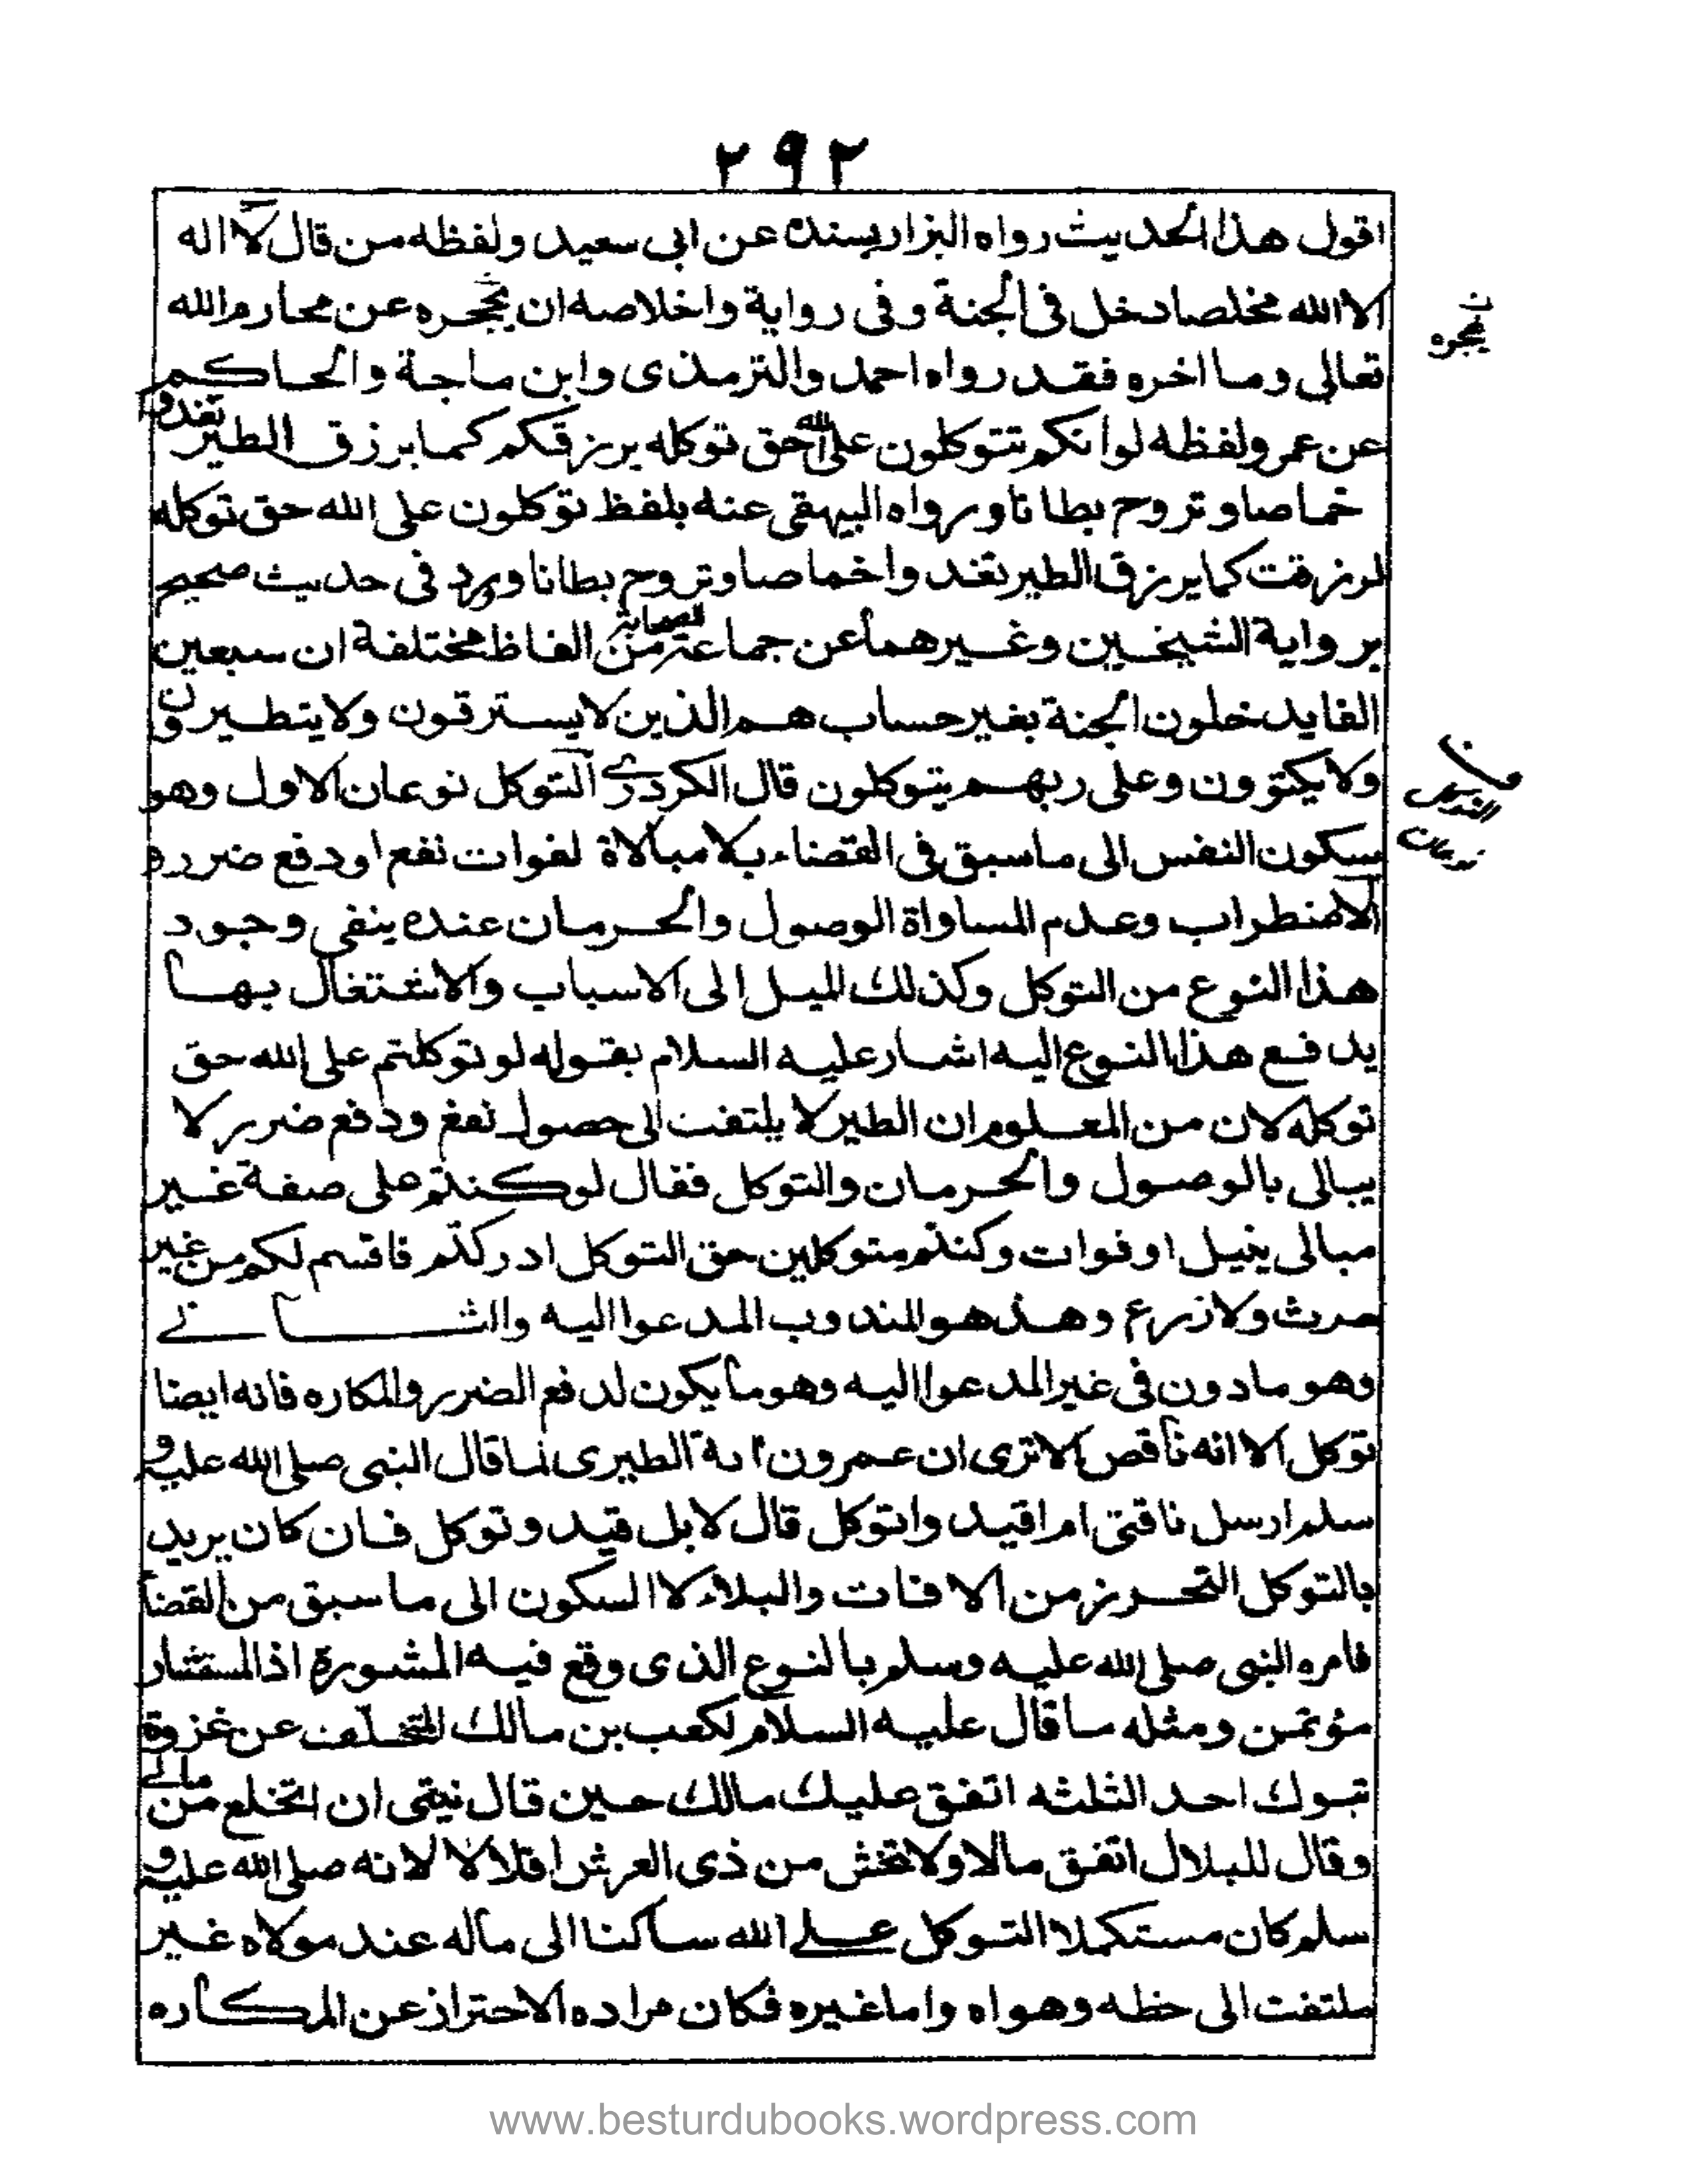 ٢٩٢
اقول هذا الحديث رواه البزار بسنده عن ابى سعيد ولفظه من قال لا اله
الا الله مخلصا دخل فى الجنة وفى رواية واخلاصه ان يحجره عن محارم الله
يحجره
تعالى وما اخره فقد رواه احمد والترمذى وابن ماجة والحاكم
عن عمر ولفظه لو انكم تتوكلون على الله حق توكله يرزقكم كما يرزق الطير تغدوا
خماصا وتروح بطانا ورواه البيهقى عنه بلفظ توكلون على الله حق توكله
لرزقت كما يرزق الطير تغدوا خماصا وتروح بطانا وورد فى حديث صحيح
برواية الشيخين وغيرهما عن جماعة من الصحابة الفاظ مختلفة ان سبعين
الفا يدخلون الجنة بغير حساب هم الذين لا يسترقون ولا يتطيرون
ولا يكتوون وعلى ربهم يتوكلون قال الكردرى التوكل نوعان الاول وهو
نوعان
سكون النفس الى ما سبق فى القضاء بلا مبالاة لفوات نفع او دفع ضرره
الاضطراب وعدم المساواة الوصول والحرمان عنده ينفى وجود
هذا النوع من التوكل وكذلك الميل الى الاسباب والاشتغال بها
يدفع هذا النوع اليه اشار عليه السلام بقوله لو توكلتم على الله حق
توكله لان من المعلوم ان الطير لا يلتفت الى حصول نفع ودفع ضرر لا
يبالى بالوصول والحرمان والتوكل فقال لو كنتم على صفة غير
مبالى بنيل او فوات وكنتم متوكلين حق التوكل ادركتم ما قسم لكم من غير
حرث ولا زرع وهذ هو المندوب المدعوا اليه والثانے
وهو ما دون فى غير المدعوا اليه وهو ما يكون لدفع الضرر والمكاره فانه ايضا
توكل الا انه ناقص الا ترى ان عمرو بن امية الطيرى لما قال النبى صلى الله عليه و
سلم ارسل ناقتى ام اقيد واتوكل قال لا بل قيد وتوكل فان كان يريد
بالتوكل التحرز من الافات والبلاء لا السكون الى ما سبق من القضا
فامره النبى صلى الله عليه وسلم بالنوع الذى وقع فيه المشورة اذ المستشار
مؤتمن ومثله ما قال عليه السلام لكعب بن مالك المتخلف عن غزوة
تبوك احد الثلثه اتفق عليك مالك حين قال نيتى ان اتخلع من مالے
وقال للبلال اتفق مالا ولا تخش من ذى العرش اقلالا لانه صلى الله عليه و
سلم كان مستكملا التوكل علے الله ساكنا الى ماله عند مولاه غير
ملتفت الى حظه وهواه واما غيره فكان مراده الاحتراز عن المكاره
www.besturdubooks.wordpress.com